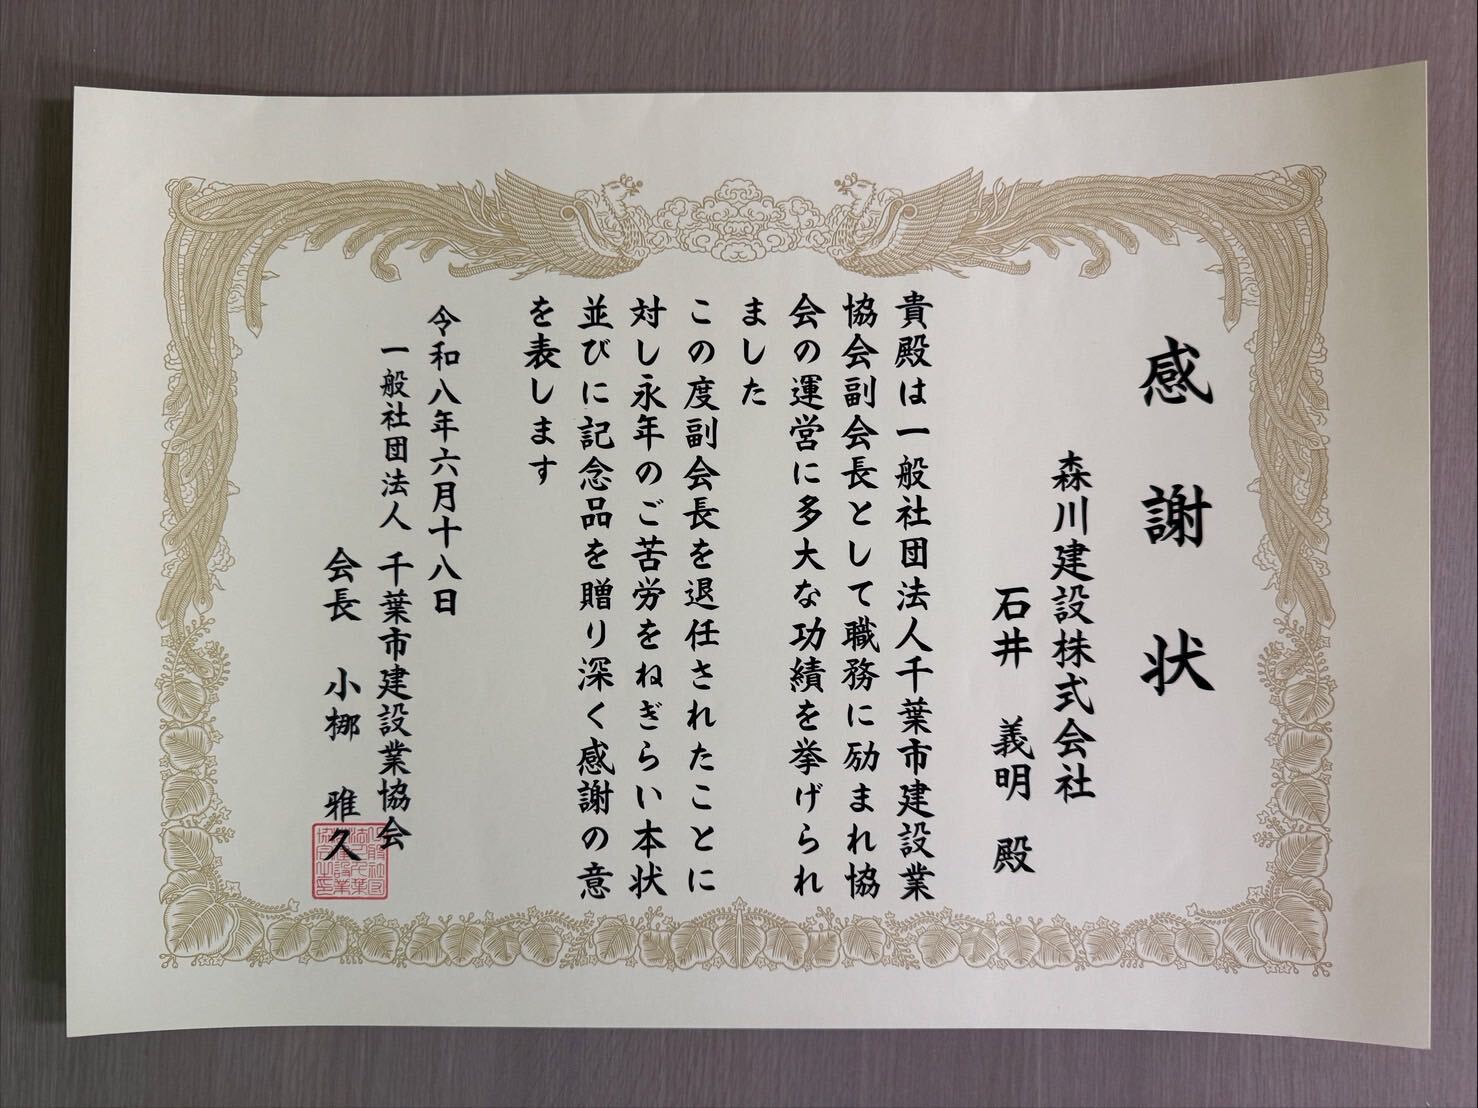 感謝状
森川建設株式会社
石井 義明 殿
貴殿は一般社団法人千葉市建設業
協会副会長として職務に励まれ協
会の運営に多大な功績を挙げられ
ました
この度副会長を退任されたことに
対し永年のご苦労をねぎらい本状
並びに記念品を贈り深く感謝の意
を表します
令和八年六月十八日
一般社団法人 千葉市建設業協会
会長 小梛 雅久